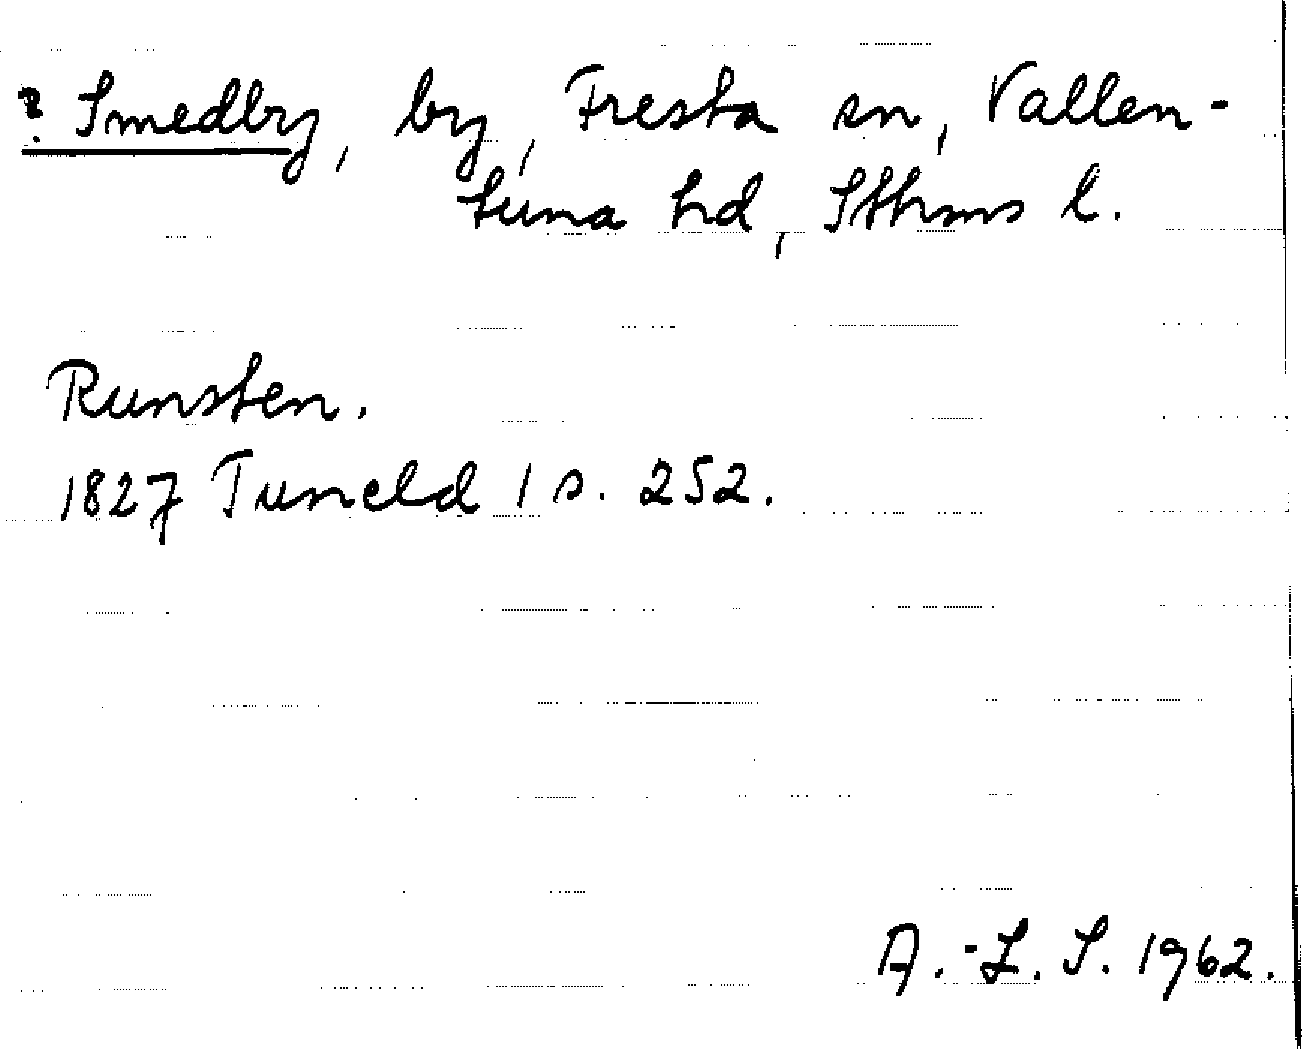 ? Smedby, by, Fresta sn, Vallen-
tuna hd, Sthms l.
Runsten.
1827 Tuneld 1 s. 252.
A.-L. S. 1962.